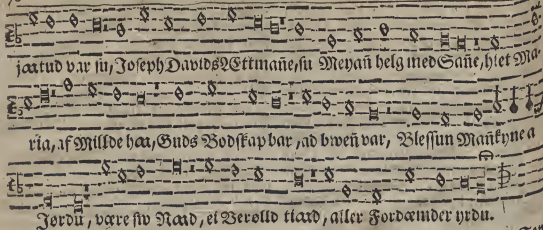 jaatud var su, Joseph Davids Ættmañe, su Meyañ helg med Sañe, hiet Ma-
ria, af Millde haa, Guds Bodskap bar, ad hweñ var, Blessun Mañkyne a
Jordu, være siv Naad, ei Verolld tiaad, aller Fordæmder yrdu.